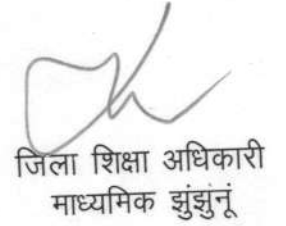 जिला शिक्षा अधिकारी
माध्यमिक झुंझुनूं